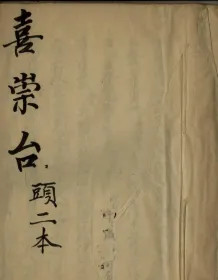 喜崇台
頭二本